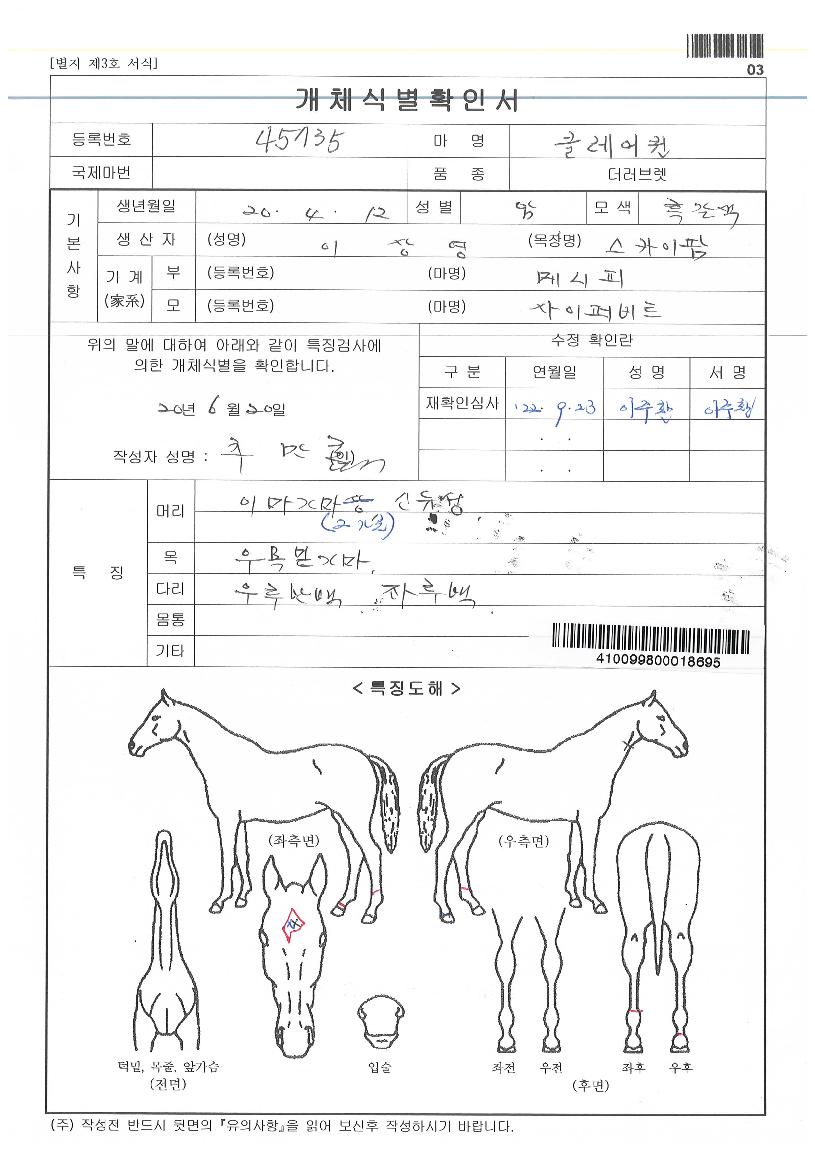 [별지 제3호 서식]
03
개체식별확인서
등록번호 45735 마 명 클레어퀸
국제마번 품 종 더러브렛
기본사항
생년월일 20. 4. 12 성별 암 모색 흑갈색
생산자 (성명) 이 장 영 (목장명) 스카이팜
기계(家系) 부 (등록번호) (마명) 메시피
모 (등록번호) (마명) 사이퍼비트
위의 말에 대하여 아래와 같이 특징검사에
의한 개체식별을 확인합니다.
20년 6월 20일
작성자 성명 : 추 만 (인)
수정 확인란
구 분 연월일 성 명 서 명
재확인심사 '22. 9. 23 이주환 이주환
. .
. .
특 징
머리 이마가마
(2개)
목 우목믿가마
다리 우후반백 좌후백
몸통
기타
410099800018695
< 특징도해 >
(좌측면) (우측면)
턱밑, 목줄, 앞가슴
(전면)
입술
좌전 우전 좌후 우후
(후면)
(주) 작성전 반드시 뒷면의 『유의사항』을 읽어 보신후 작성하시기 바랍니다.